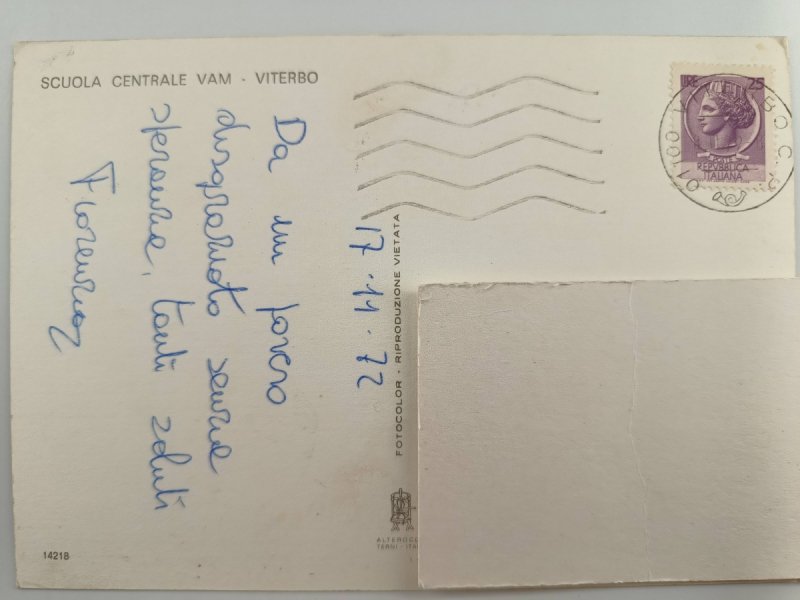 SCUOLA CENTRALE VAM - VITERBO
17·11·72
Da un povero
disgraziato senza
speranza, tanti saluti
Fiorenzo
FOTOCOLOR - RIPRODUZIONE VIETATA
LIRE 25
POSTE
REPVBBLICA
ITALIANA
01100 VITERBO C.P.
ALTEROCCA
TERNI - ITA
14218